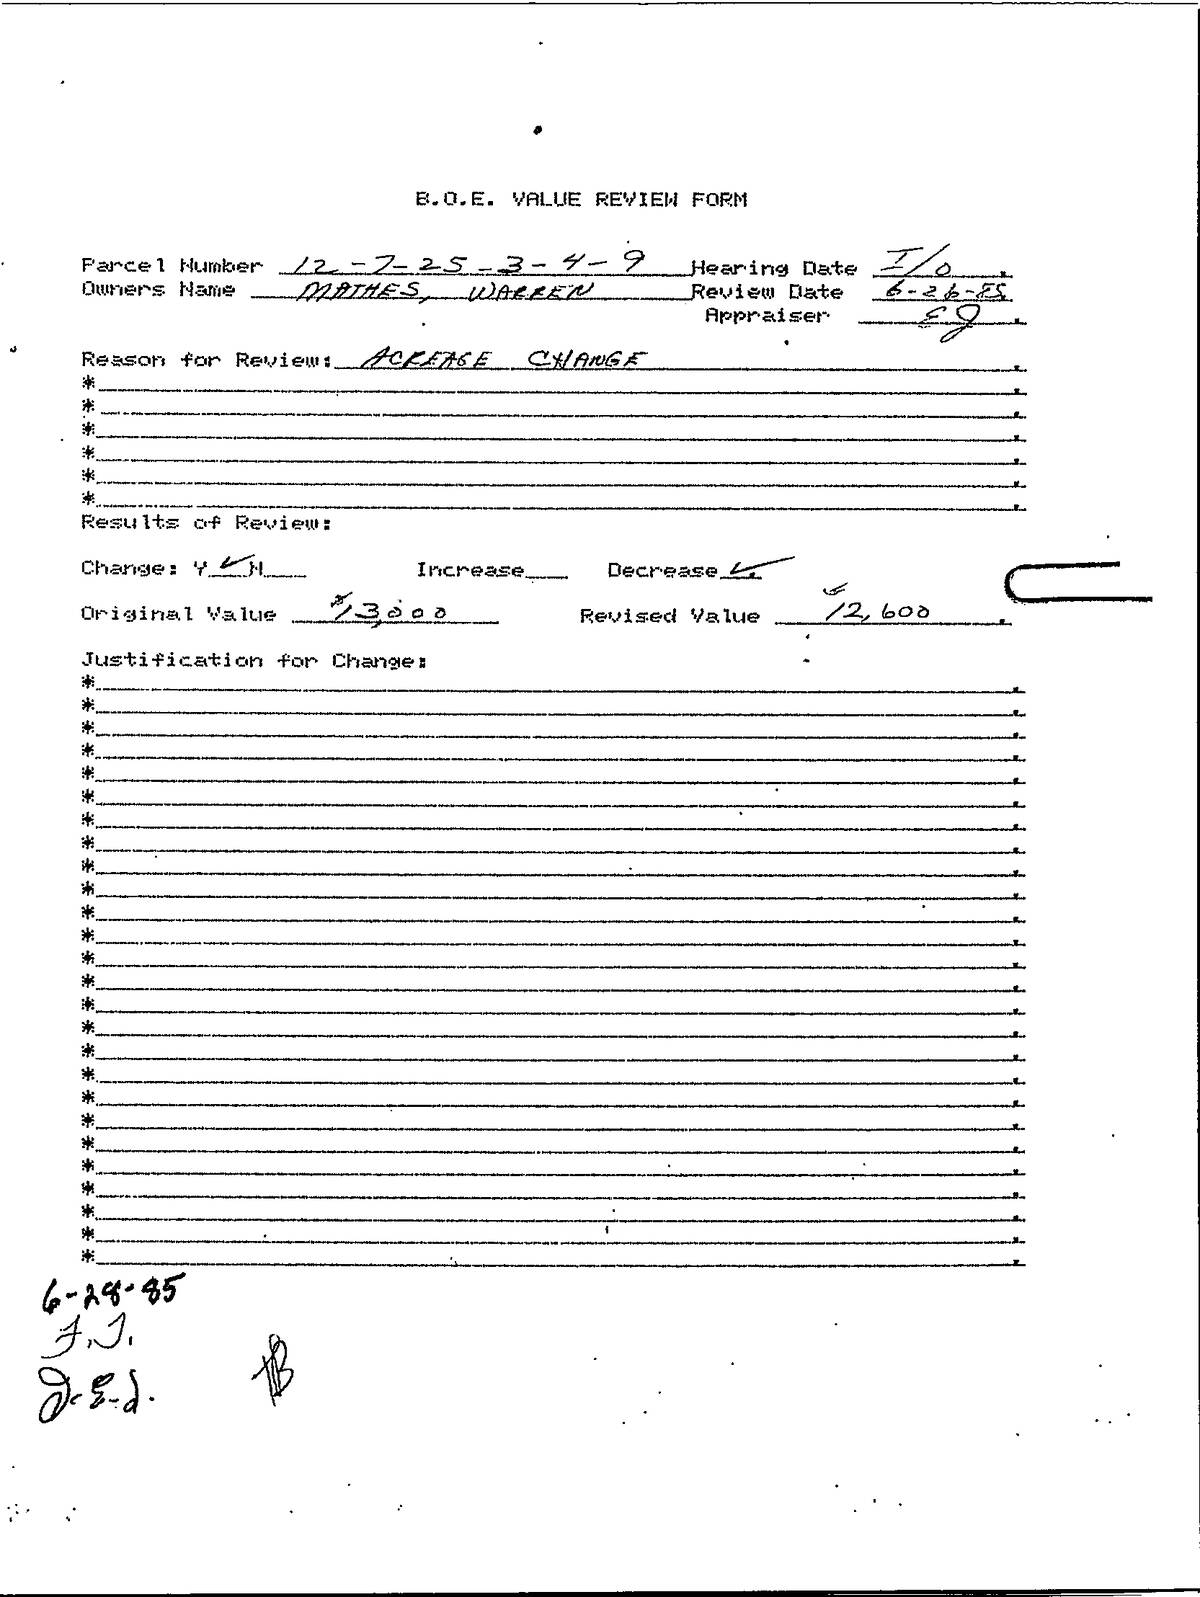 B.O.E. VALUE REVIEW FORM
Parcel Number 12-7-25-3-4-9 Hearing Date I/O.
Owners Name MATHES, WARREN Review Date 6-26-85.
Appraiser EJ.
Reason for Review: ACREAGE CHANGE.
*.
*.
*.
*.
*.
*.
Results of Review:
Change: Y ✓ N Increase Decrease ✓.
Original Value $13,000 Revised Value 12,600.
Justification for Change:
*.
*.
*.
*.
*.
*.
*.
*.
*.
*.
*.
*.
*.
*.
*.
*.
*.
*.
*.
*.
*.
*.
*.
*.
*.
*.
6-28-85
J.J.